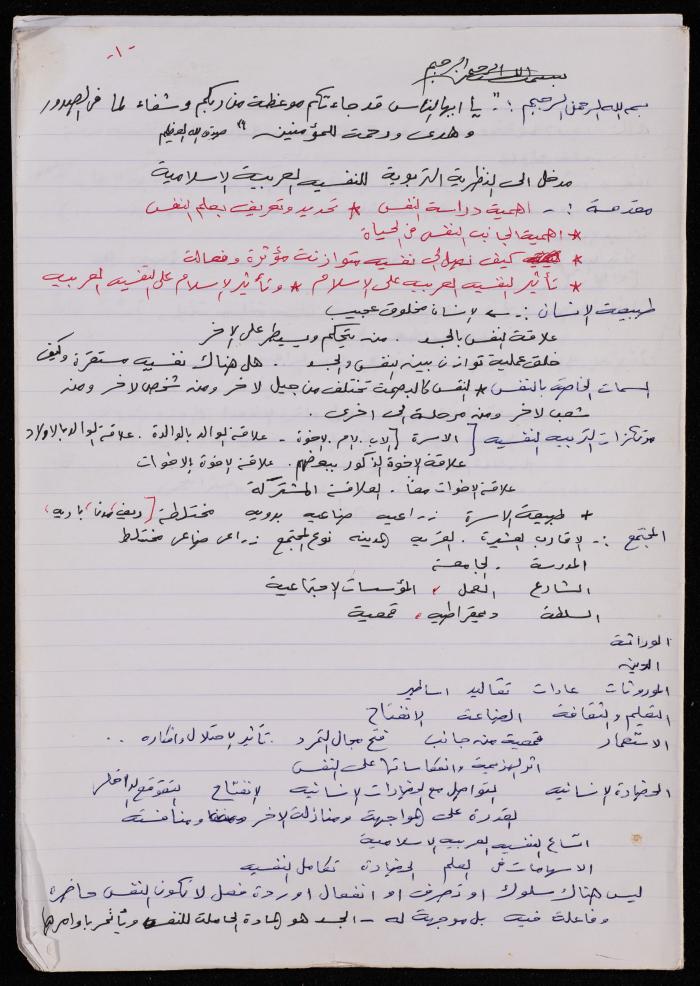 -١-
بسم الله الرحمن الرحيم
بسم الله الرحمن الرحيم :. " يا ايها الناس قد جاءتكم موعظة من ربكم وشفاء لما في الصدور
وهدى ورحمة للمؤمنين " صدق الله العظيم
مدخل الى النظرية التربوية للنفسيه العربية الاسلامية
مقدمة :- اهمية دراسة النفس * تحديد وتعريف بعلم النفس
* اهمية الجانب النفسي في الحياة
* كيف نصل الى نفسيه متوازنة مؤثرة وفعالة
* تأثير النفسيه العربيه على الاسلام * وتأثير الاسلام على النفسيه العربيه
طبيعة الانسان :- الانسان مخلوق عجيب
علاقة النفس بالجسد . من يتحكم ويسيطر على الاخر
خلق عملية توازن بين النفس والجسد . هل هناك نفسيه مستقرة وكيف
السمات الخاصة بالنفس * النفس كالبصمة تختلف من جيل لاخر ومن شخص لاخر ومن
شعب لاخر ومن مرحلة الى اخرى .
مرتكزات التربيه النفسيه [ الاسرة [ الاب . الام . الاخوة - علاقة الوالد بالوالدة . علاقة الوالد بالاولاد
علاقة الاخوة الذكور ببعضهم . علاقة الاخوة بالاخوات
علاقة الاخوات معا . العلاقة المشتركة
* طبيعة الاسرة زراعيه صناعيه بدويه مختلطة [ ريف، مدن، باديه،
المجتمع :- الاقارب العشيرة . القريه المدينه نوع المجتمع زراعي صناعي مختلط
المدرسة . الجامعة
الشارع العمل ، المؤسسات الاجتماعية
السلطة ديمقراطيه ، قمعية
الوراثة
الدين
الموروثات عادات تقاليد اساطير
التعليم والثقافة الصناعة الانفتاح
الاستعمار قمعية من جانب فتح مجال التمرد . تأثير الاحتلال وافكاره ..
اثر الهزيمة وانعكاساتها على النفس
الحضارة الانسانيه التواصل مع الحضارات الانسانيه الانفتاح التقوقع الداخلي
القدرة على المواجهة ومنازلة الاخر ومنافسته
اتساع النفسيه العربيه الاسلامية
الاسهامات في العلم الحضارة تكامل النفسيه
ليس هناك سلوك او تصرف او انفعال او ردة فعل لا تكون النفس حاضره
وفاعلة فيه بل موجهة له - الجسد هو المادة الحاملة للنفس ويأتمر باوامرها